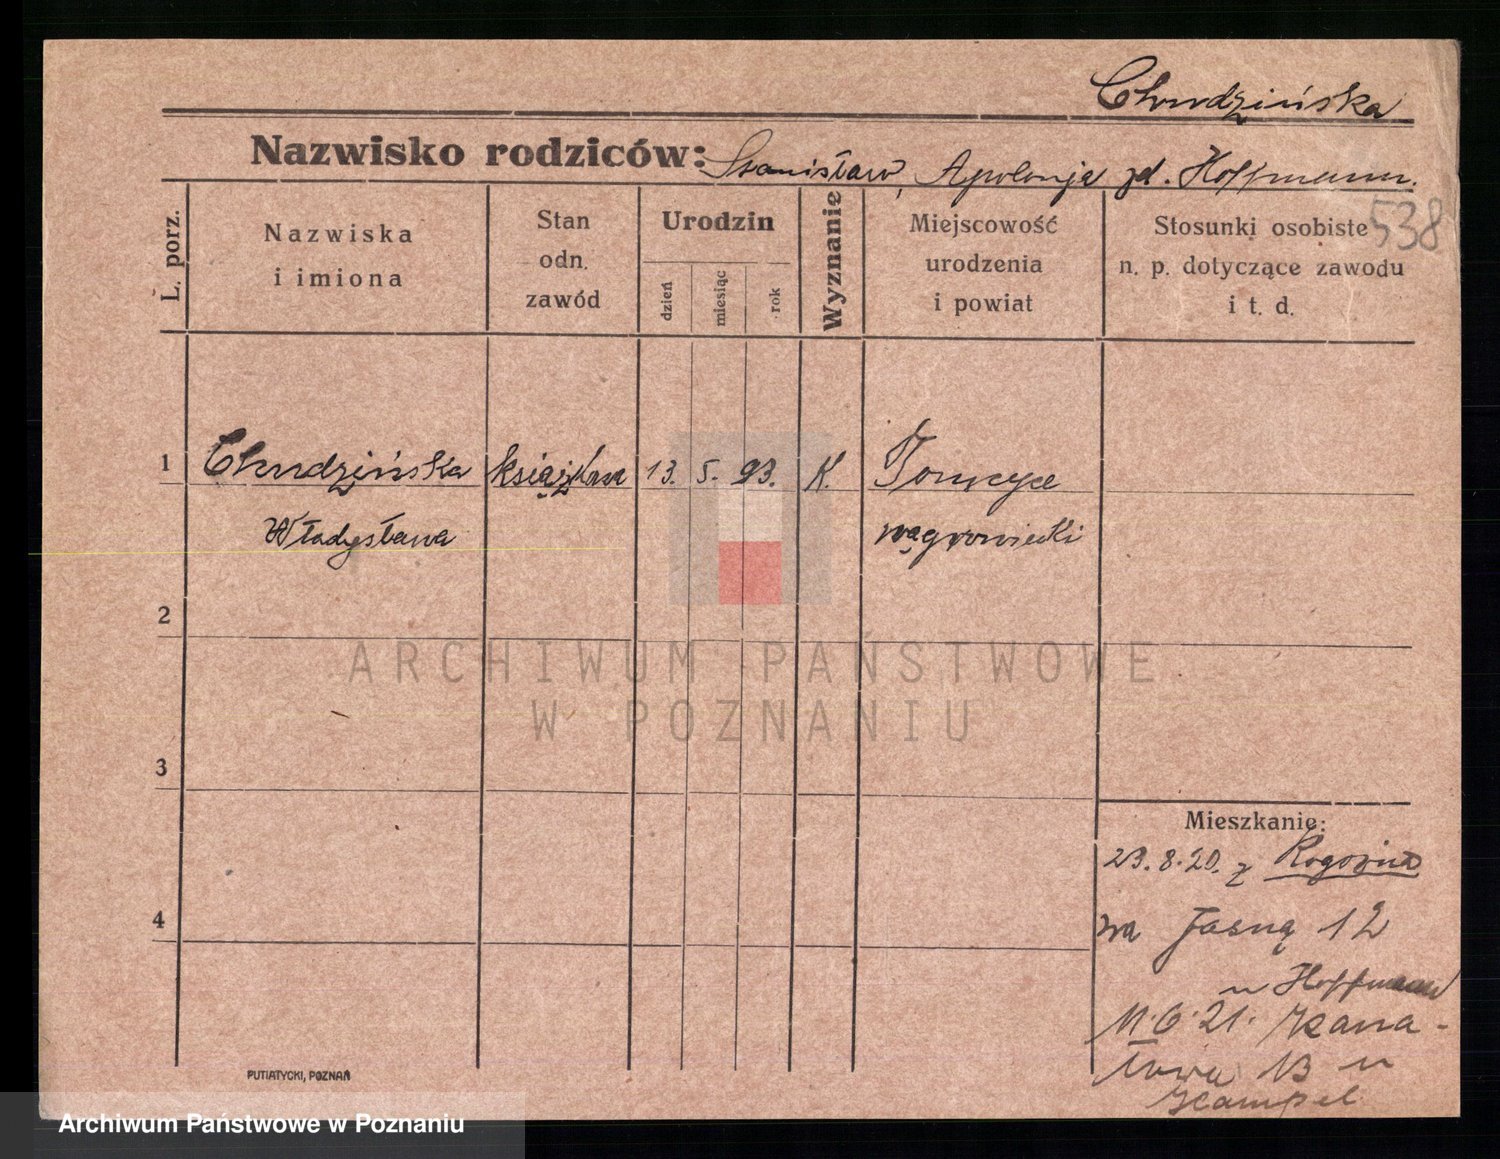 Chudzińska
Nazwisko rodziców: Stanisław, Apolonja zd. Hoffmann.
538
L. porz.
Nazwiska
i imiona
Stan
odn.
zawód
Urodzin
dzień
miesiąc
rok
Wyznanie
Miejscowość
urodzenia
i powiat
Stosunki osobiste
n. p. dotyczące zawodu
i t. d.
1 Chudzińska książkowa 13. 5. 93. K.
Władysława wągrowiecki
2
ARCHIWUM PAŃSTWOWE
W POZNANIU
3
Mieszkanie:
23.8.20. z Rogoźna
4
na Jasną 12
u Hoffmann
11.6.21. Kana-
łowa 13 u
Hampel
PUTIATYCKI, POZNAŃ
Archiwum Państwowe w Poznaniu